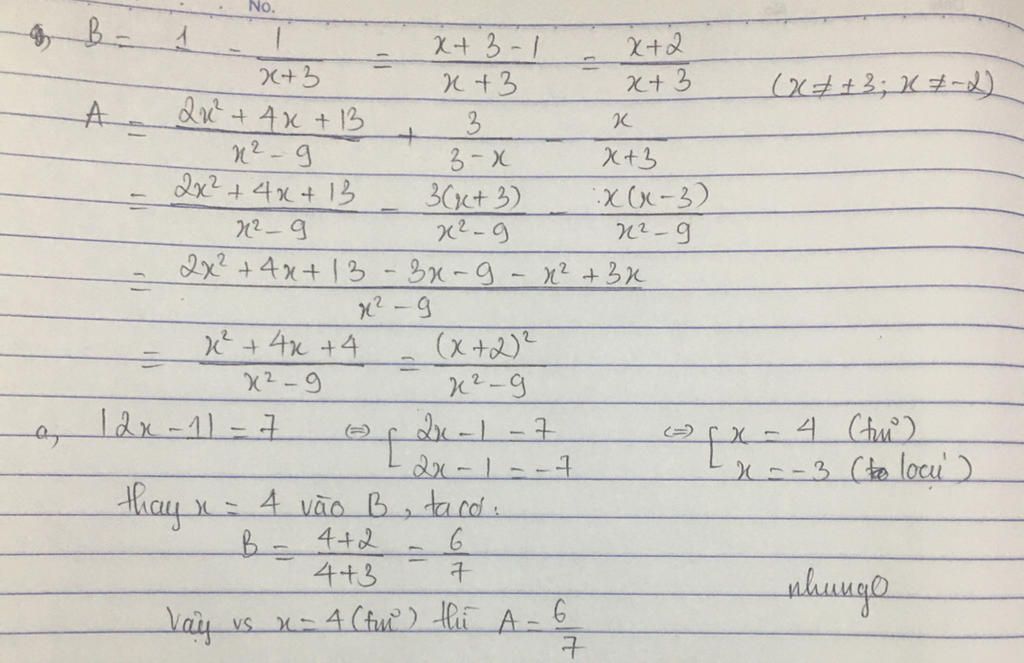 No.
B = 1 - 1/(x+3) = (x+3-1)/(x+3) = (x+2)/(x+3) (x ≠ ±3; x ≠ -2)
A = (2x² + 4x + 13)/(x² - 9) + 3/(3 - x) - x/(x+3)
= (2x² + 4x + 13)/(x² - 9) - 3(x+3)/(x² - 9) - x(x-3)/(x² - 9)
= (2x² + 4x + 13 - 3x - 9 - x² + 3x)/(x² - 9)
= (x² + 4x + 4)/(x² - 9) = (x+2)²/(x² - 9)
a, |2x - 1| = 7 ⇔ [ 2x - 1 = 7 ⇔ [ x = 4 (tm)
2x - 1 = -7 x = -3 (loại)
thay x = 4 vào B, ta có:
B = (4+2)/(4+3) = 6/7
nhung0
Vậy vs x = 4 (tm) thì A = 6/7